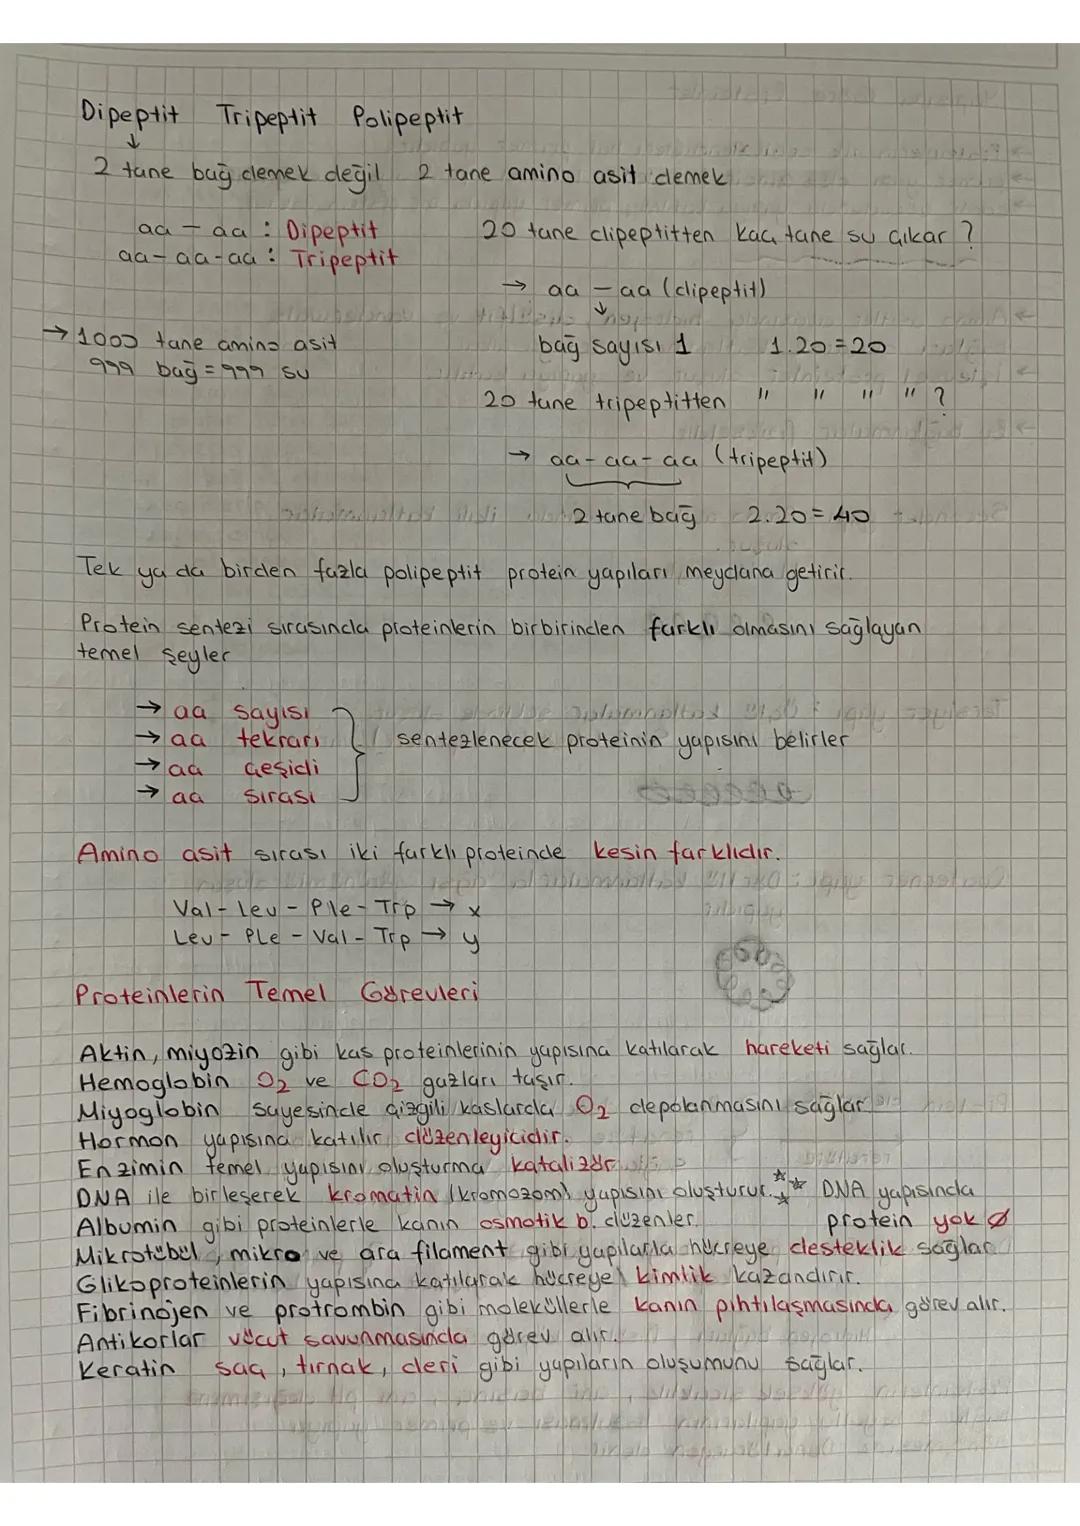 Dipeptit Tripeptit Polipeptit
↓
2 tane bağ demek değil 2 tane amino asit demek
aa - aa : Dipeptit
aa - aa - aa : Tripeptit
→ 1000 tane amino asit
999 bağ = 999 su
20 tane dipeptitten kaç tane su çıkar ?
→ aa - aa (dipeptit)
↓
bağ sayısı 1 1.20 = 20
20 tane tripeptitten " " " " ?
→ aa - aa - aa (tripeptit)
2 tane bağ 2.20 = 40
Tek ya da birden fazla polipeptit protein yapıları meydana getirir.
Protein sentezi sırasında proteinlerin birbirinden farklı olmasını sağlayan
temel şeyler
→ aa sayısı
→ aa tekrarı
→ aa çeşidi
→ aa sırası
sentezlenecek proteinin yapısını belirler
Amino asit sırası iki farklı proteinde kesin farklıdır.
Val - Leu - Ple - Trp → x
Leu - PLe - Val - Trp → y
Proteinlerin Temel Görevleri
Aktin, miyozin gibi kas proteinlerinin yapısına katılarak hareketi sağlar.
Hemoglobin O2 ve CO2 gazları taşır.
Miyoglobin sayesinde çizgili kaslarda O2 depolanmasını sağlar
Hormon yapısına katılır düzenleyicidir.
Enzimin temel yapısını oluşturma katalizör
DNA ile birleşerek kromatin (kromozom) yapısını oluşturur. ☆☆☆ DNA yapısında
protein yok Ø
Albumin gibi proteinlerle kanın osmotik b. düzenler.
Mikrotübül, mikro ve ara filament gibi yapılarla hücreye desteklik sağlar
Glikoproteinlerin yapısına katılarak hücreye kimlik kazandırır.
Fibrinojen ve protrombin gibi moleküllerle kanın pıhtılaşmasında görev alır.
Antikorlar vücut savunmasında görev alır.
Keratin saç, tırnak, deri gibi yapıların oluşumunu sağlar.